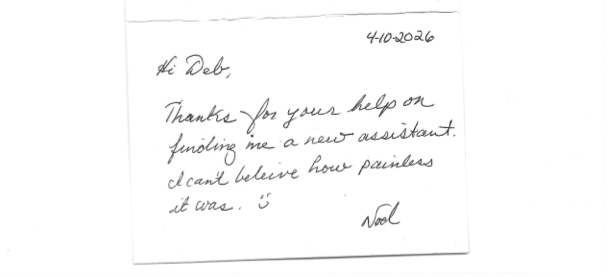 4-10-2026
Hi Deb,
Thanks for your help on
finding me a new assistant.
I cant beleive how painless
it was. ت
Noel